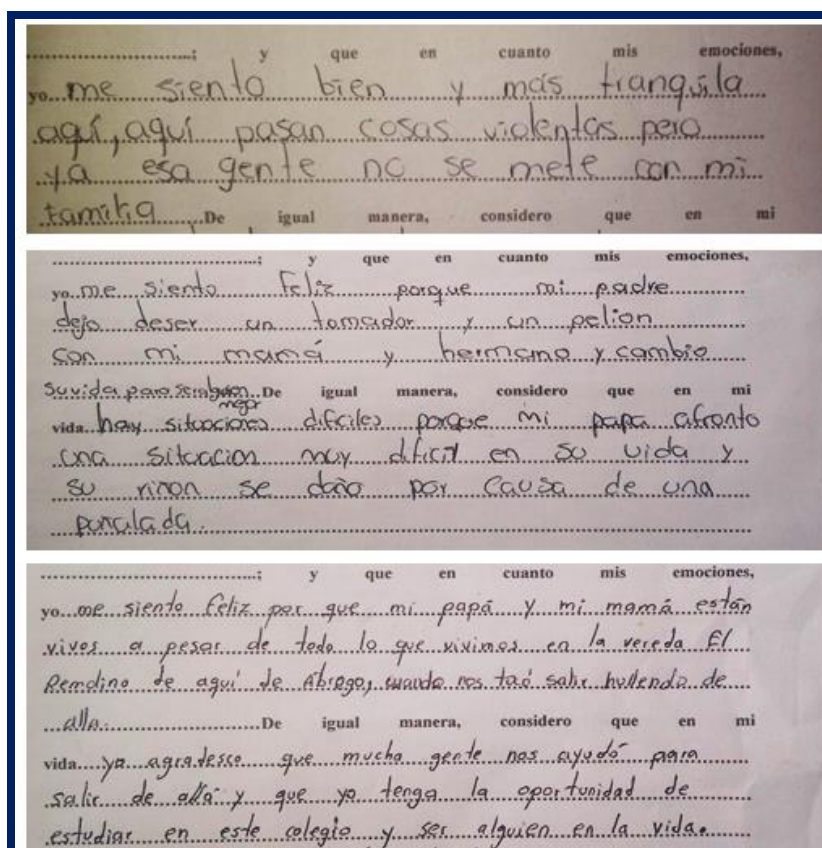 ..............................; y que en cuanto mis emociones,
yo me siento bien y más tranquila
aquí, aquí pasan cosas violentas pero
ya esa gente no se mete con mi
familia De igual manera, considero que en mi
..............................; y que en cuanto mis emociones,
yo me siento feliz porque mi padre
dejo deser un tomador y un pelion
con mi mamá y hermano y cambio
su vida para De igual manera, considero que en mi
mejor
vida hay situaciones dificiles porque mi papa afronto
una situacion muy dificil en su vida y
su riñon se daño por causa de una
puñalada.
..............................; y que en cuanto mis emociones,
yo me siento feliz por que mi papá y mi mamá están
vivos a pesar de todo lo que vivimos en la vereda El
de aquí de Abrego, cuando nos tocó salir hullendo de
alla. De igual manera, considero que en mi
vida yo agradesco que mucha gente nos ayudó para
salir de allá y que yo tenga la oportunidad de
estudiar en este colegio y ser alguien en la vida.